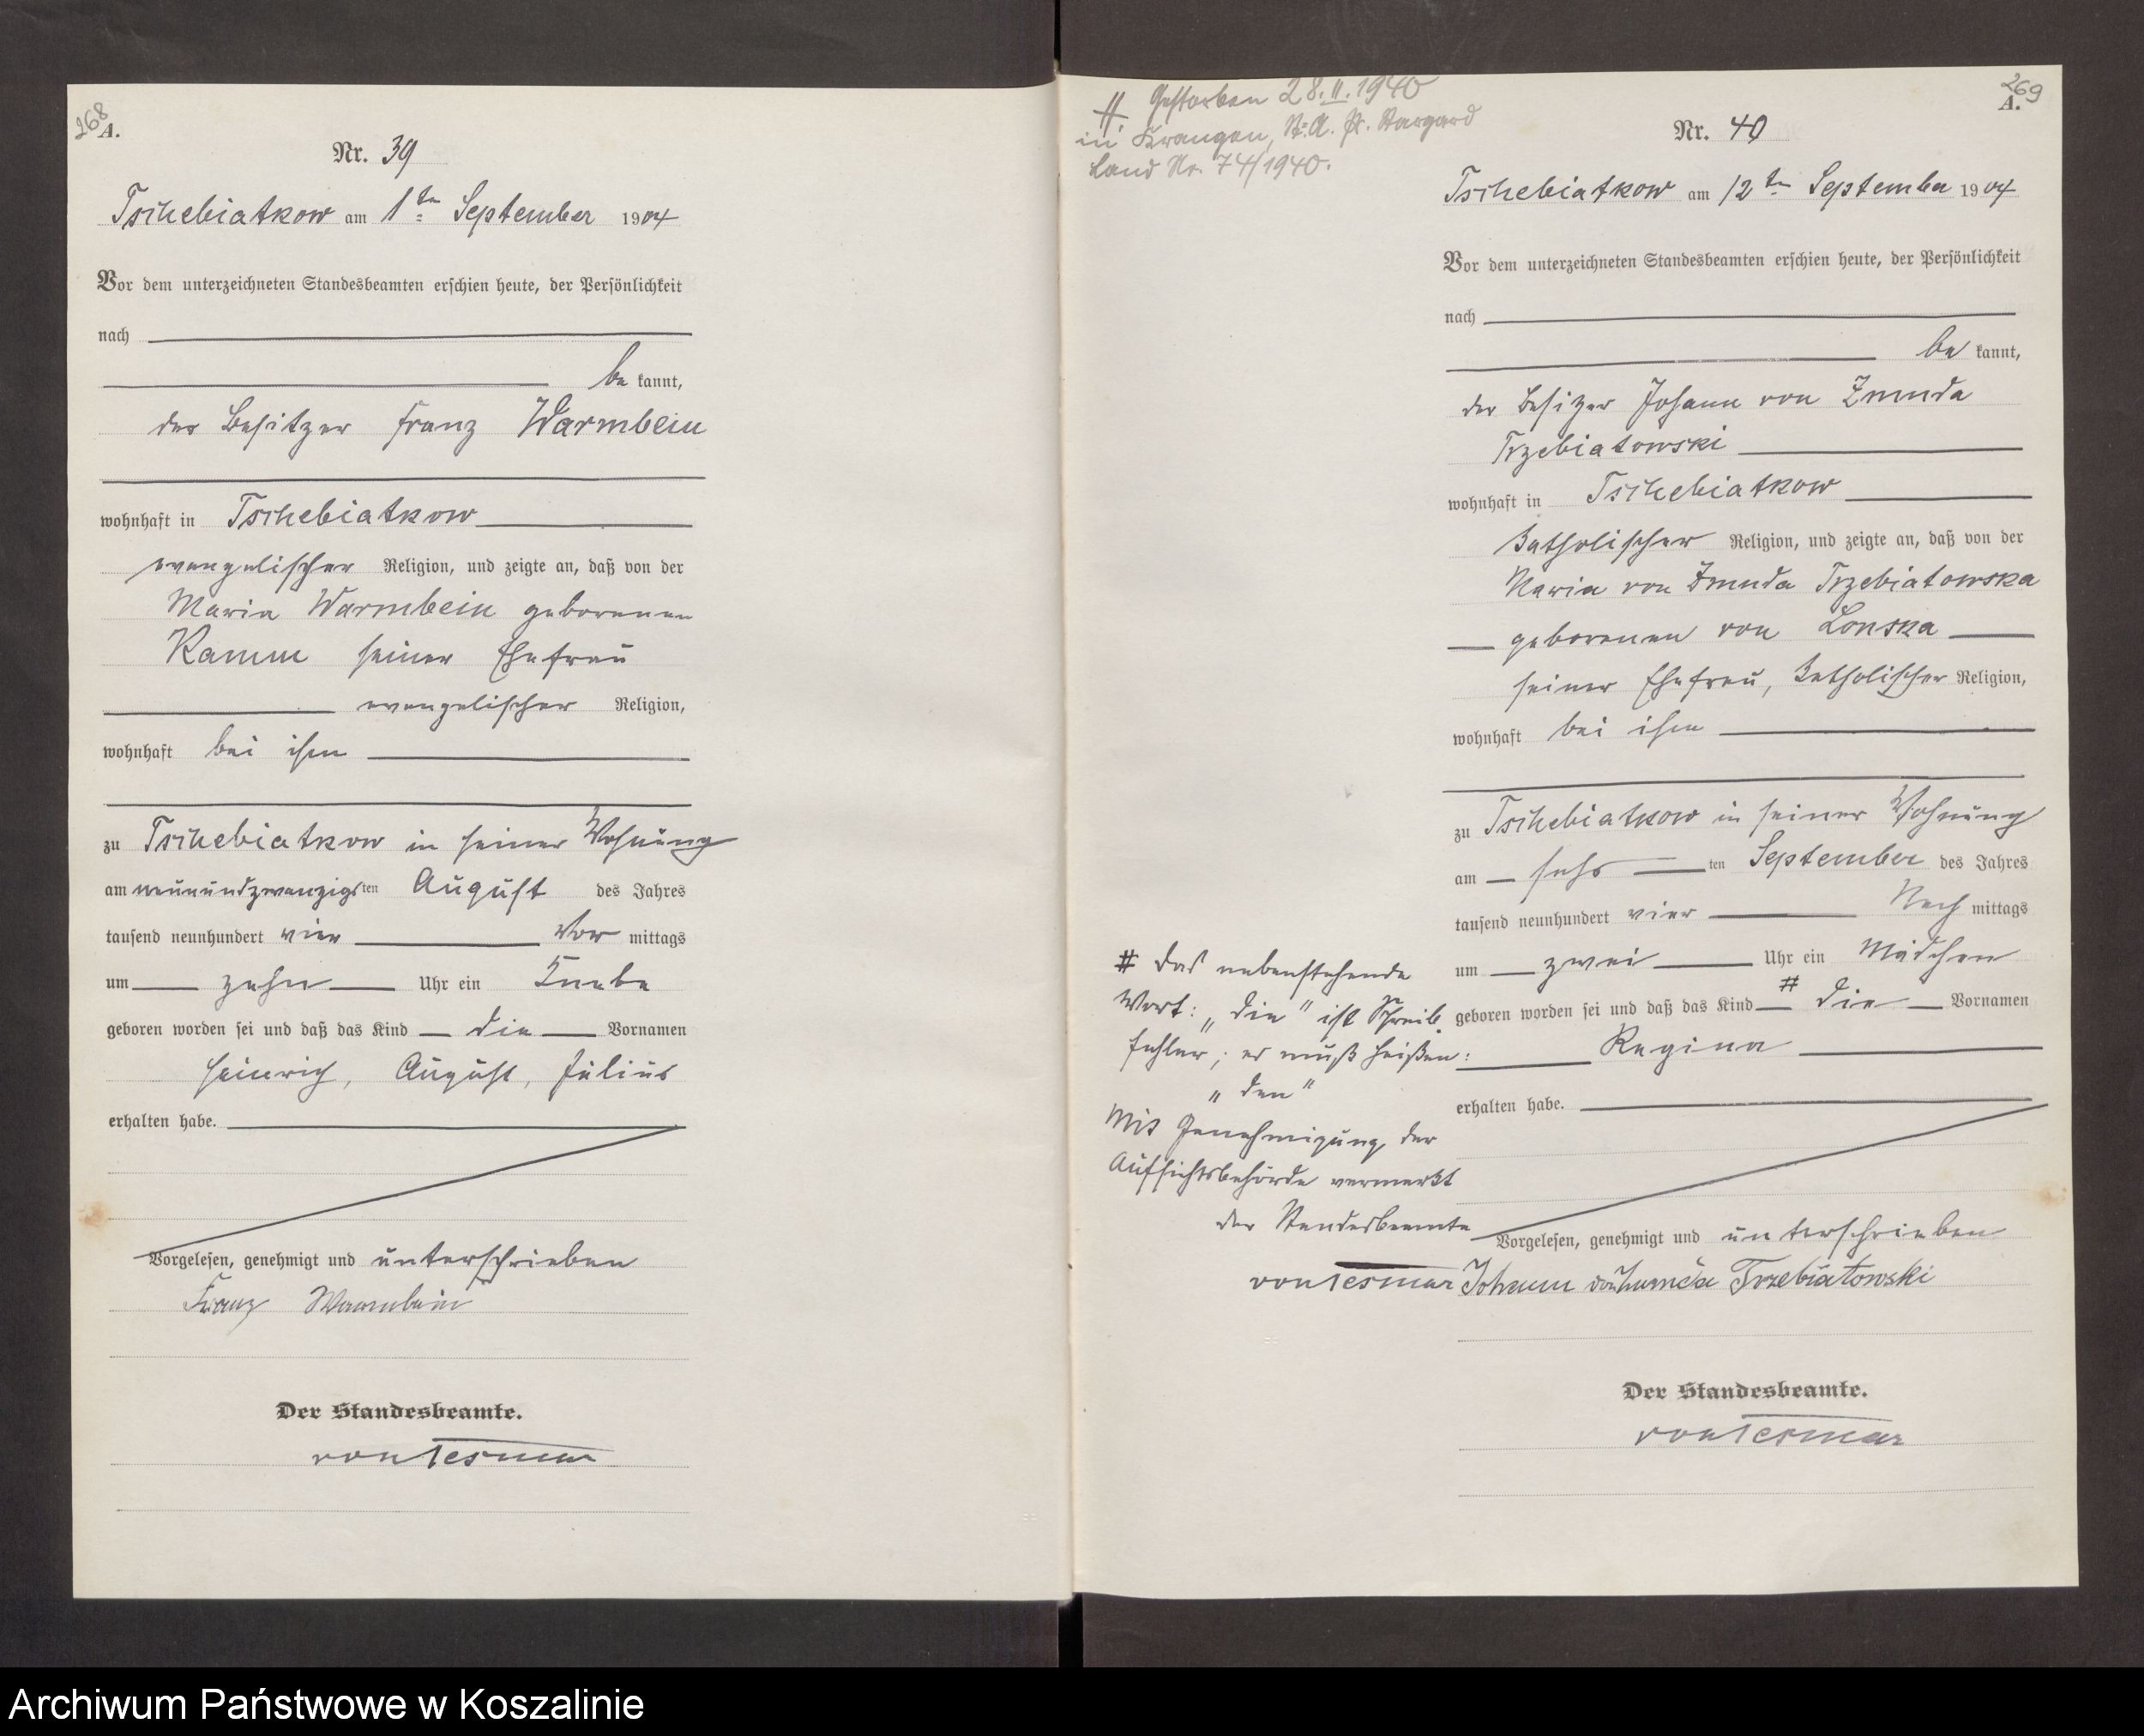 268
A.
Nr. 39
Tschebiatkow am 1ten September 1904
Vor dem unterzeichneten Standesbeamten erschien heute, der Persönlichkeit
nach
be kannt,
der Besitzer Franz Warmbein
wohnhaft in Tschebiatkow
evangelischer Religion, und zeigte an, daß von der
Maria Warmbein geborenen
Kamm seiner Ehefrau
evangelischer Religion,
wohnhaft bei ihm
zu Tschebiatkow in seiner Wohnung
am neunundzwanzigsten August des Jahres
tausend neunhundert vier Vor mittags
um zehn Uhr ein Knabe
geboren worden sei und daß das Kind die Vornamen
Heinrich, August, Julius
erhalten habe.
Vorgelesen, genehmigt und unterschrieben
Franz Warmbein
Der Standesbeamte.
von Tesmar
H. Gestorben 28.II.1940
in Krangen, St.A. Pr. Stargard
Land Nr. 74/1940.
269
A.
Nr. 40
Tschebiatkow am 12ten September 1904
Vor dem unterzeichneten Standesbeamten erschien heute, der Persönlichkeit
nach
be kannt,
der Besitzer Johann von Zmuda
Trzebiatowski
wohnhaft in Tschebiatkow
katholischer Religion, und zeigte an, daß von der
Maria von Zmuda Trzebiatowska
geborenen von Lonska
seiner Ehefrau, katholischer Religion,
wohnhaft bei ihm
zu Tschebiatkow in seiner Wohnung
am sechs ten September des Jahres
tausend neunhundert vier Nach mittags
um zwei Uhr ein Mädchen
geboren worden sei und daß das Kind # die Vornamen
Regina
erhalten habe.
# Das nebenstehende
Wort: „die" ist Schreib
fehler; es muß heißen:
„den"
Mit Genehmigung der
Aufsichtsbehörde vermerkt
Der Standesbeamte
von Tesmar
Vorgelesen, genehmigt und unterschrieben
Johann von Zmuda Trzebiatowski
Der Standesbeamte.
von Tesmar
Archiwum Państwowe w Koszalinie